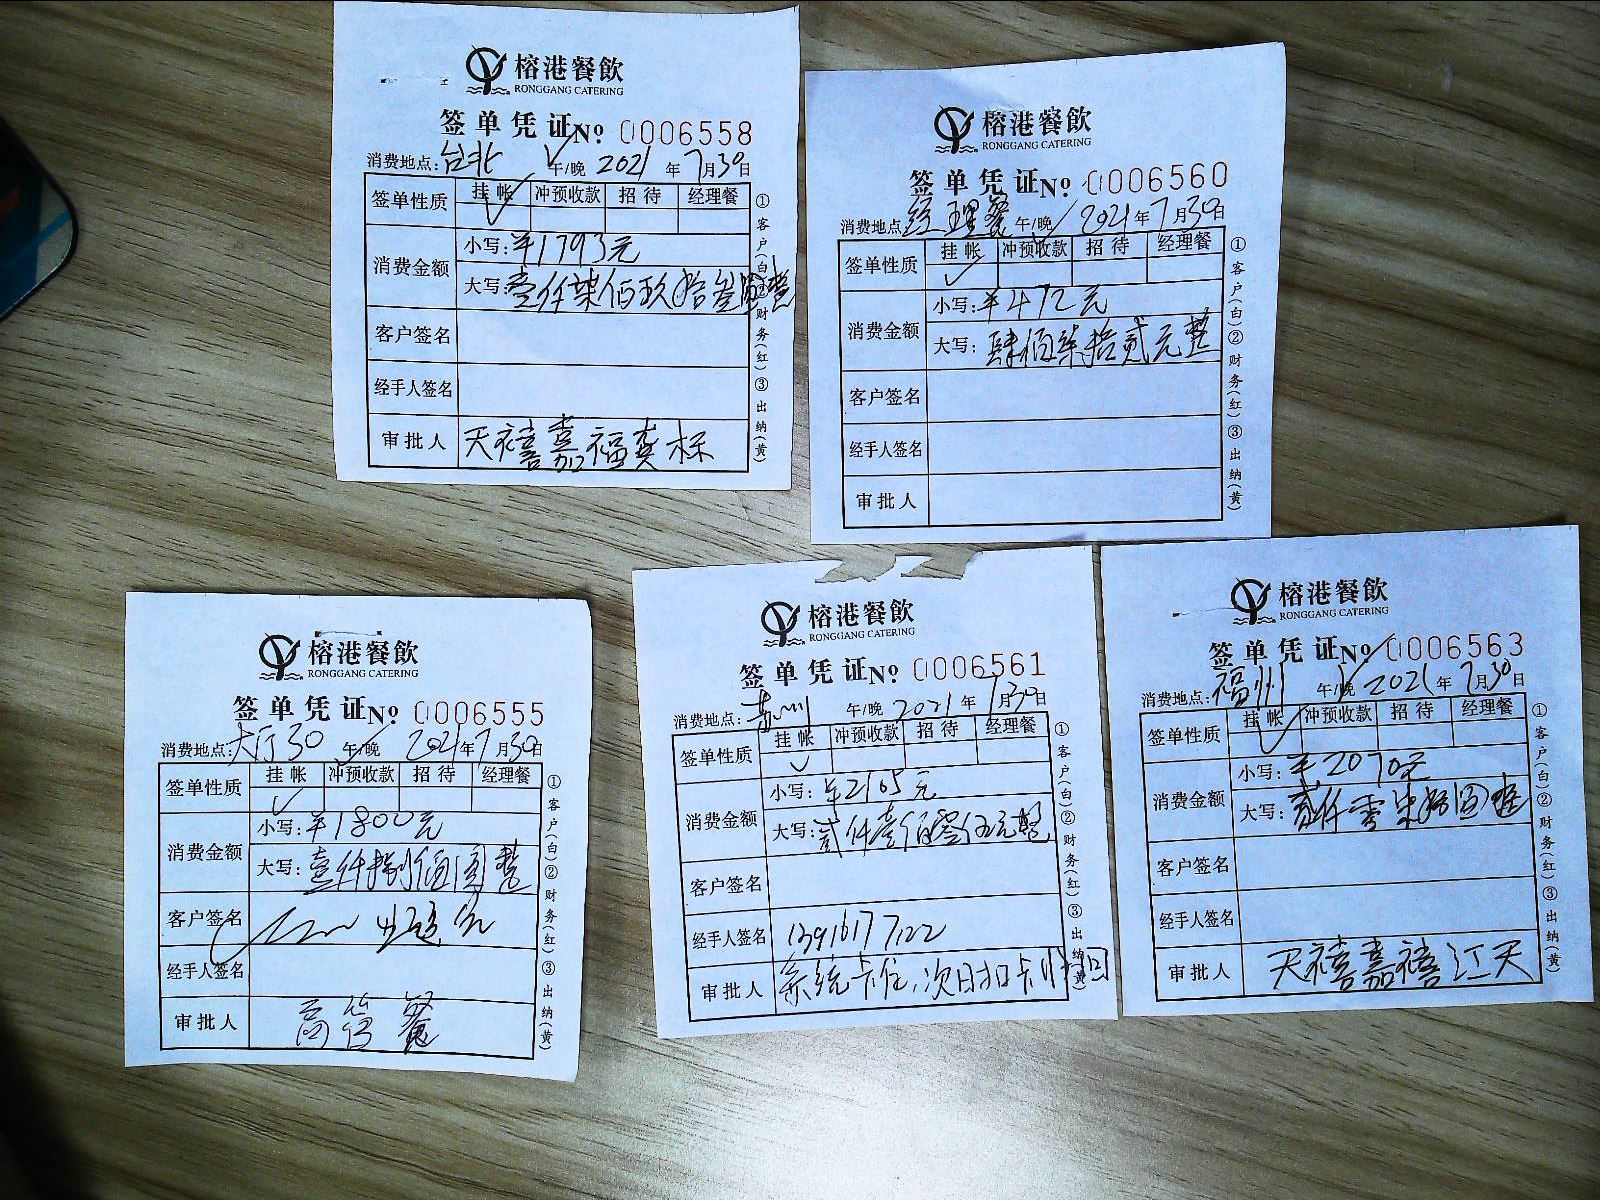 榕港餐飲
RONGGANG CATERING
签单凭证No 0006558
消费地点:台北 午/晚 2021年7月30日
签单性质 挂帐 冲预收款 招待 经理餐
消费金额 小写:¥1793元
大写:壹仟柒佰玖拾叁圆整
客户签名
经手人签名
审批人 天禧嘉福龚栎
①客户(白)②财务(红)③出纳(黄)
榕港餐飲
RONGGANG CATERING
签单凭证No 0006560
消费地点 经理餐 午/晚 2021年7月30日
签单性质 挂帐 冲预收款 招待 经理餐
消费金额 小写:¥472元
大写:肆佰柒拾贰元整
客户签名
经手人签名
审批人
①客户(白)②财务(红)③出纳(黄)
榕港餐飲
RONGGANG CATERING
签单凭证No 0006555
消费地点:大厅30 午/晚 2021年7月30日
签单性质 挂帐 冲预收款 招待 经理餐
消费金额 小写:¥1800元
大写:壹仟捌佰圆整
客户签名
经手人签名
审批人 高管餐
①客户(白)②财务(红)③出纳(黄)
榕港餐飲
RONGGANG CATERING
签单凭证No 0006561
消费地点: 午/晚 2021年7月30日
签单性质 挂帐 冲预收款 招待 经理餐
消费金额 小写:¥2105元
大写:贰仟壹佰零伍元整
客户签名
经手人签名 13916177122
审批人 系统卡住,次日扣卡
①客户(白)②财务(红)③出纳(黄)
榕港餐飲
RONGGANG CATERING
签单凭证No 0006563
消费地点:福州 午/晚 2021年7月30日
签单性质 挂帐 冲预收款 招待 经理餐
消费金额 小写:¥2070元
大写:贰仟零柒拾圆整
客户签名
经手人签名
审批人 天禧嘉禧江天
①客户(白)②财务(红)③出纳(黄)